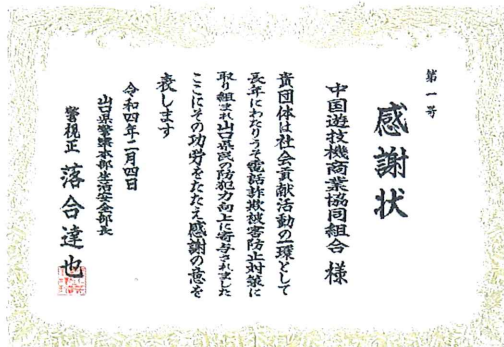 第一号
感謝状
中国遊技機商業協同組合 様
貴団体は社会貢献活動の一環として
長年にわたりうそ電話詐欺被害防止対策に
取り組まれ山口県民の防犯力向上に寄与されました
ここにその功労をたたえ感謝の意を
表します
令和四年二月四日
山口県警察本部生活安全部長
警視正 落合達也